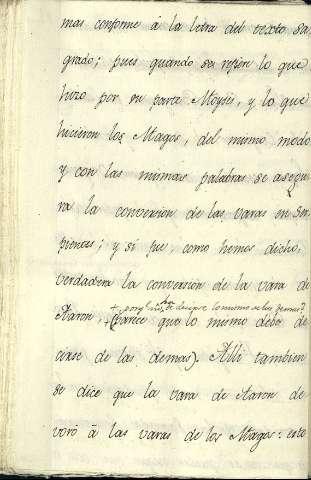 mas conforme á la letra del texto sa
grado; pues quando se refiere lo que
hizo por su parte Moyses, y lo que
hicieron los Magos, del mismo modo
y con las mismas palabras se asegu
ra la conversion de las varas en ser
pientes; y si fue, como hemos dicho,
verdadera la conversion de la vara de
Aaron, (parece que lo mismo debe de
cirse de las demas). Alli tambien
se dice que la vara de Aaron de
voró á las varas de los Magos: esto